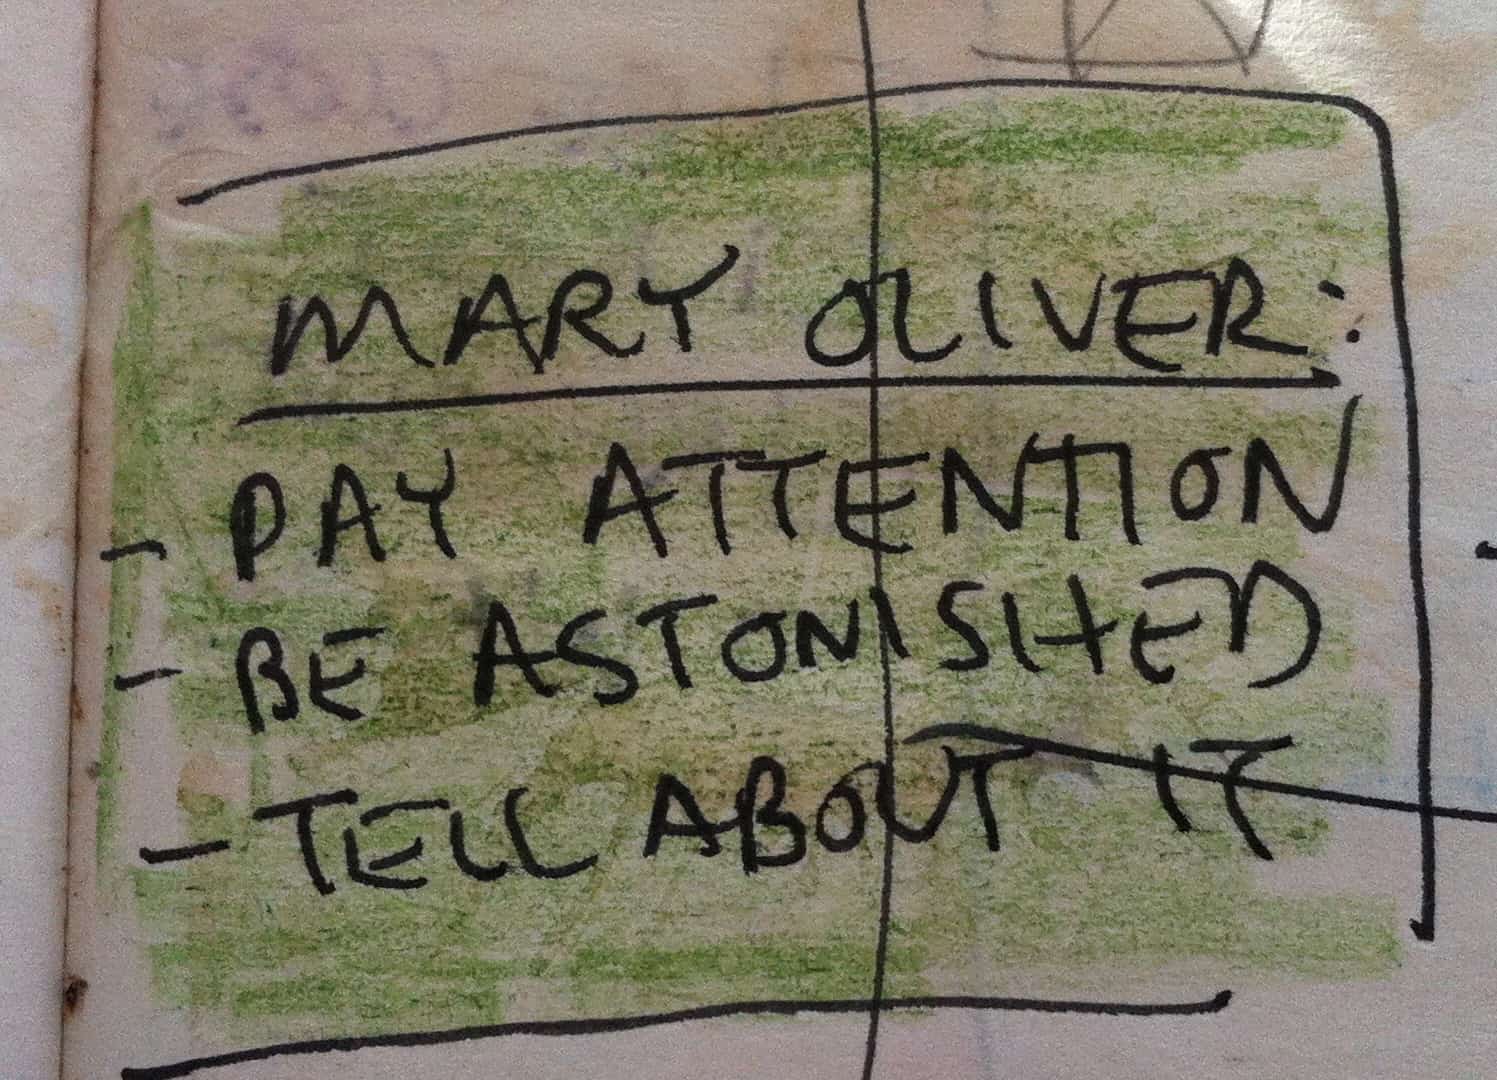 MARY OLIVER:
- PAY ATTENTION
- BE ASTONISHED
- TELL ABOUT IT